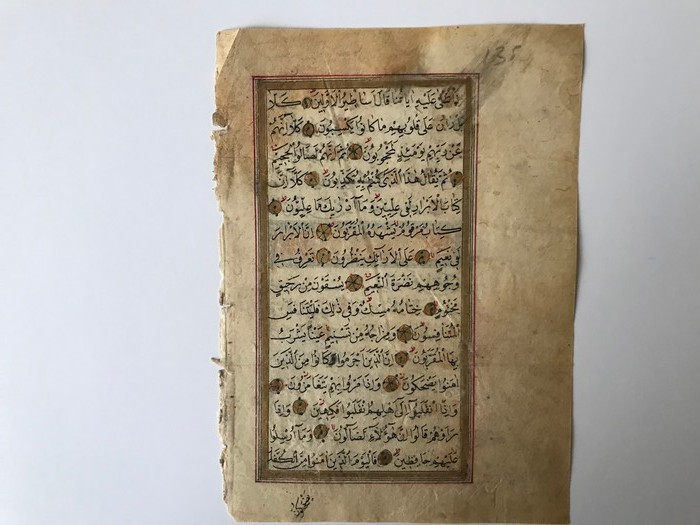 135
تتلى عليه آياتنا قال اساطير الاولين كلا
بل ران على قلوبهم ما كانوا يكسبون كلا انهم
عن ربهم يومئذ لمحجوبون ثم انهم لصالوا الجحيم
ثم يقال هذا الذى كنتم به تكذبون كلا ان
كتاب الابرار لفى عليين وما ادريك ما عليون
كتاب مرقوم يشهده المقربون ان الابرار
لفى نعيم على الارائك ينظرون تعرف فى
وجوههم نضرة النعيم يسقون من رحيق
مختوم ختامه مسك وفى ذلك فليتنافس
المتنافسون ومزاجه من تسنيم عينا يشرب
بها المقربون ان الذين اجرموا كانوا من الذين
امنوا يضحكون واذا مروا بهم يتغامزون
واذا انقلبوا الى اهلهم انقلبوا فكهين واذا
راوهم قالوا ان هؤلاء لضالون وما ارسلوا
عليهم حافظين فاليوم الذين امنوا من الكفار